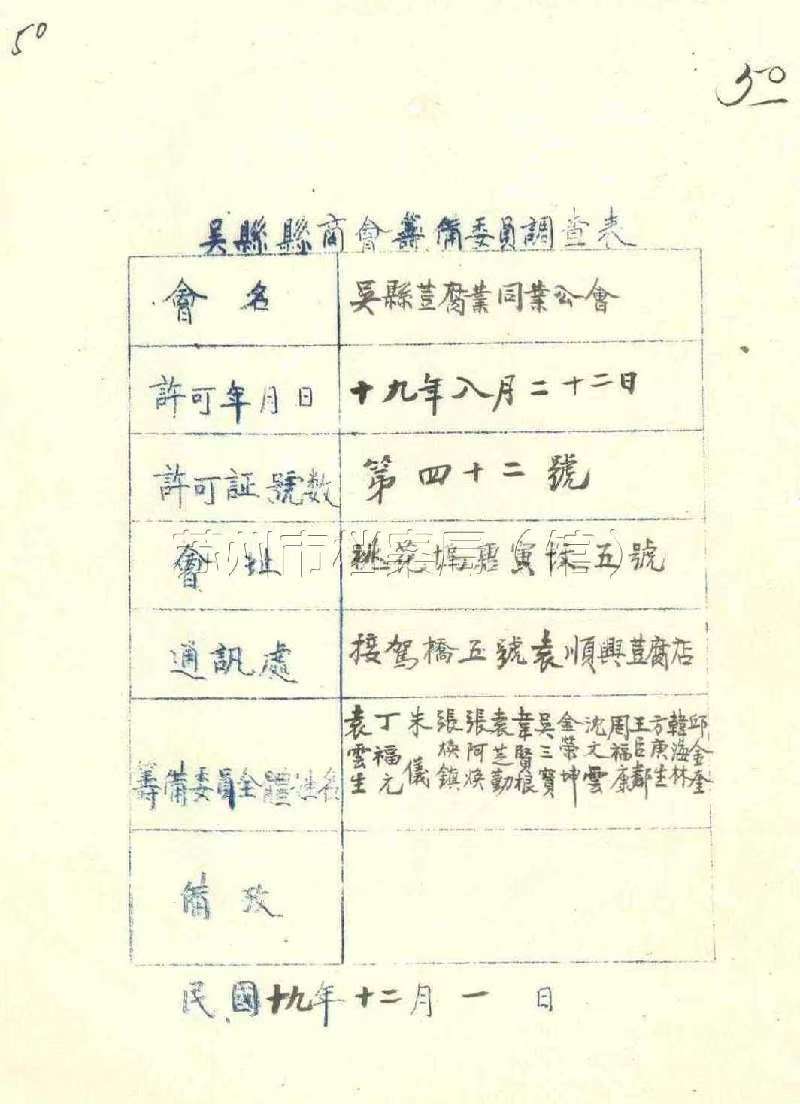 50
50
吳縣縣商會籌備委員調查表
會名
吳縣荳腐業同業公會
許可年月日
十九年八月二十二日
許可証號數
第四十二號
會址
桃花塢 寅 五號
通訊處
接駕橋五號袁順興荳腐店
籌備委員全體姓名
袁雲生
丁福元
朱儀
張煥鎮
張阿煥
袁芝勤
韋賢根
吳三寶
金榮坤
沈文雲
周福康
王臣鄰
方庚生
韓海林
邱金奎
備攷
民國十九年十二月一日
苏州市档案局(馆)